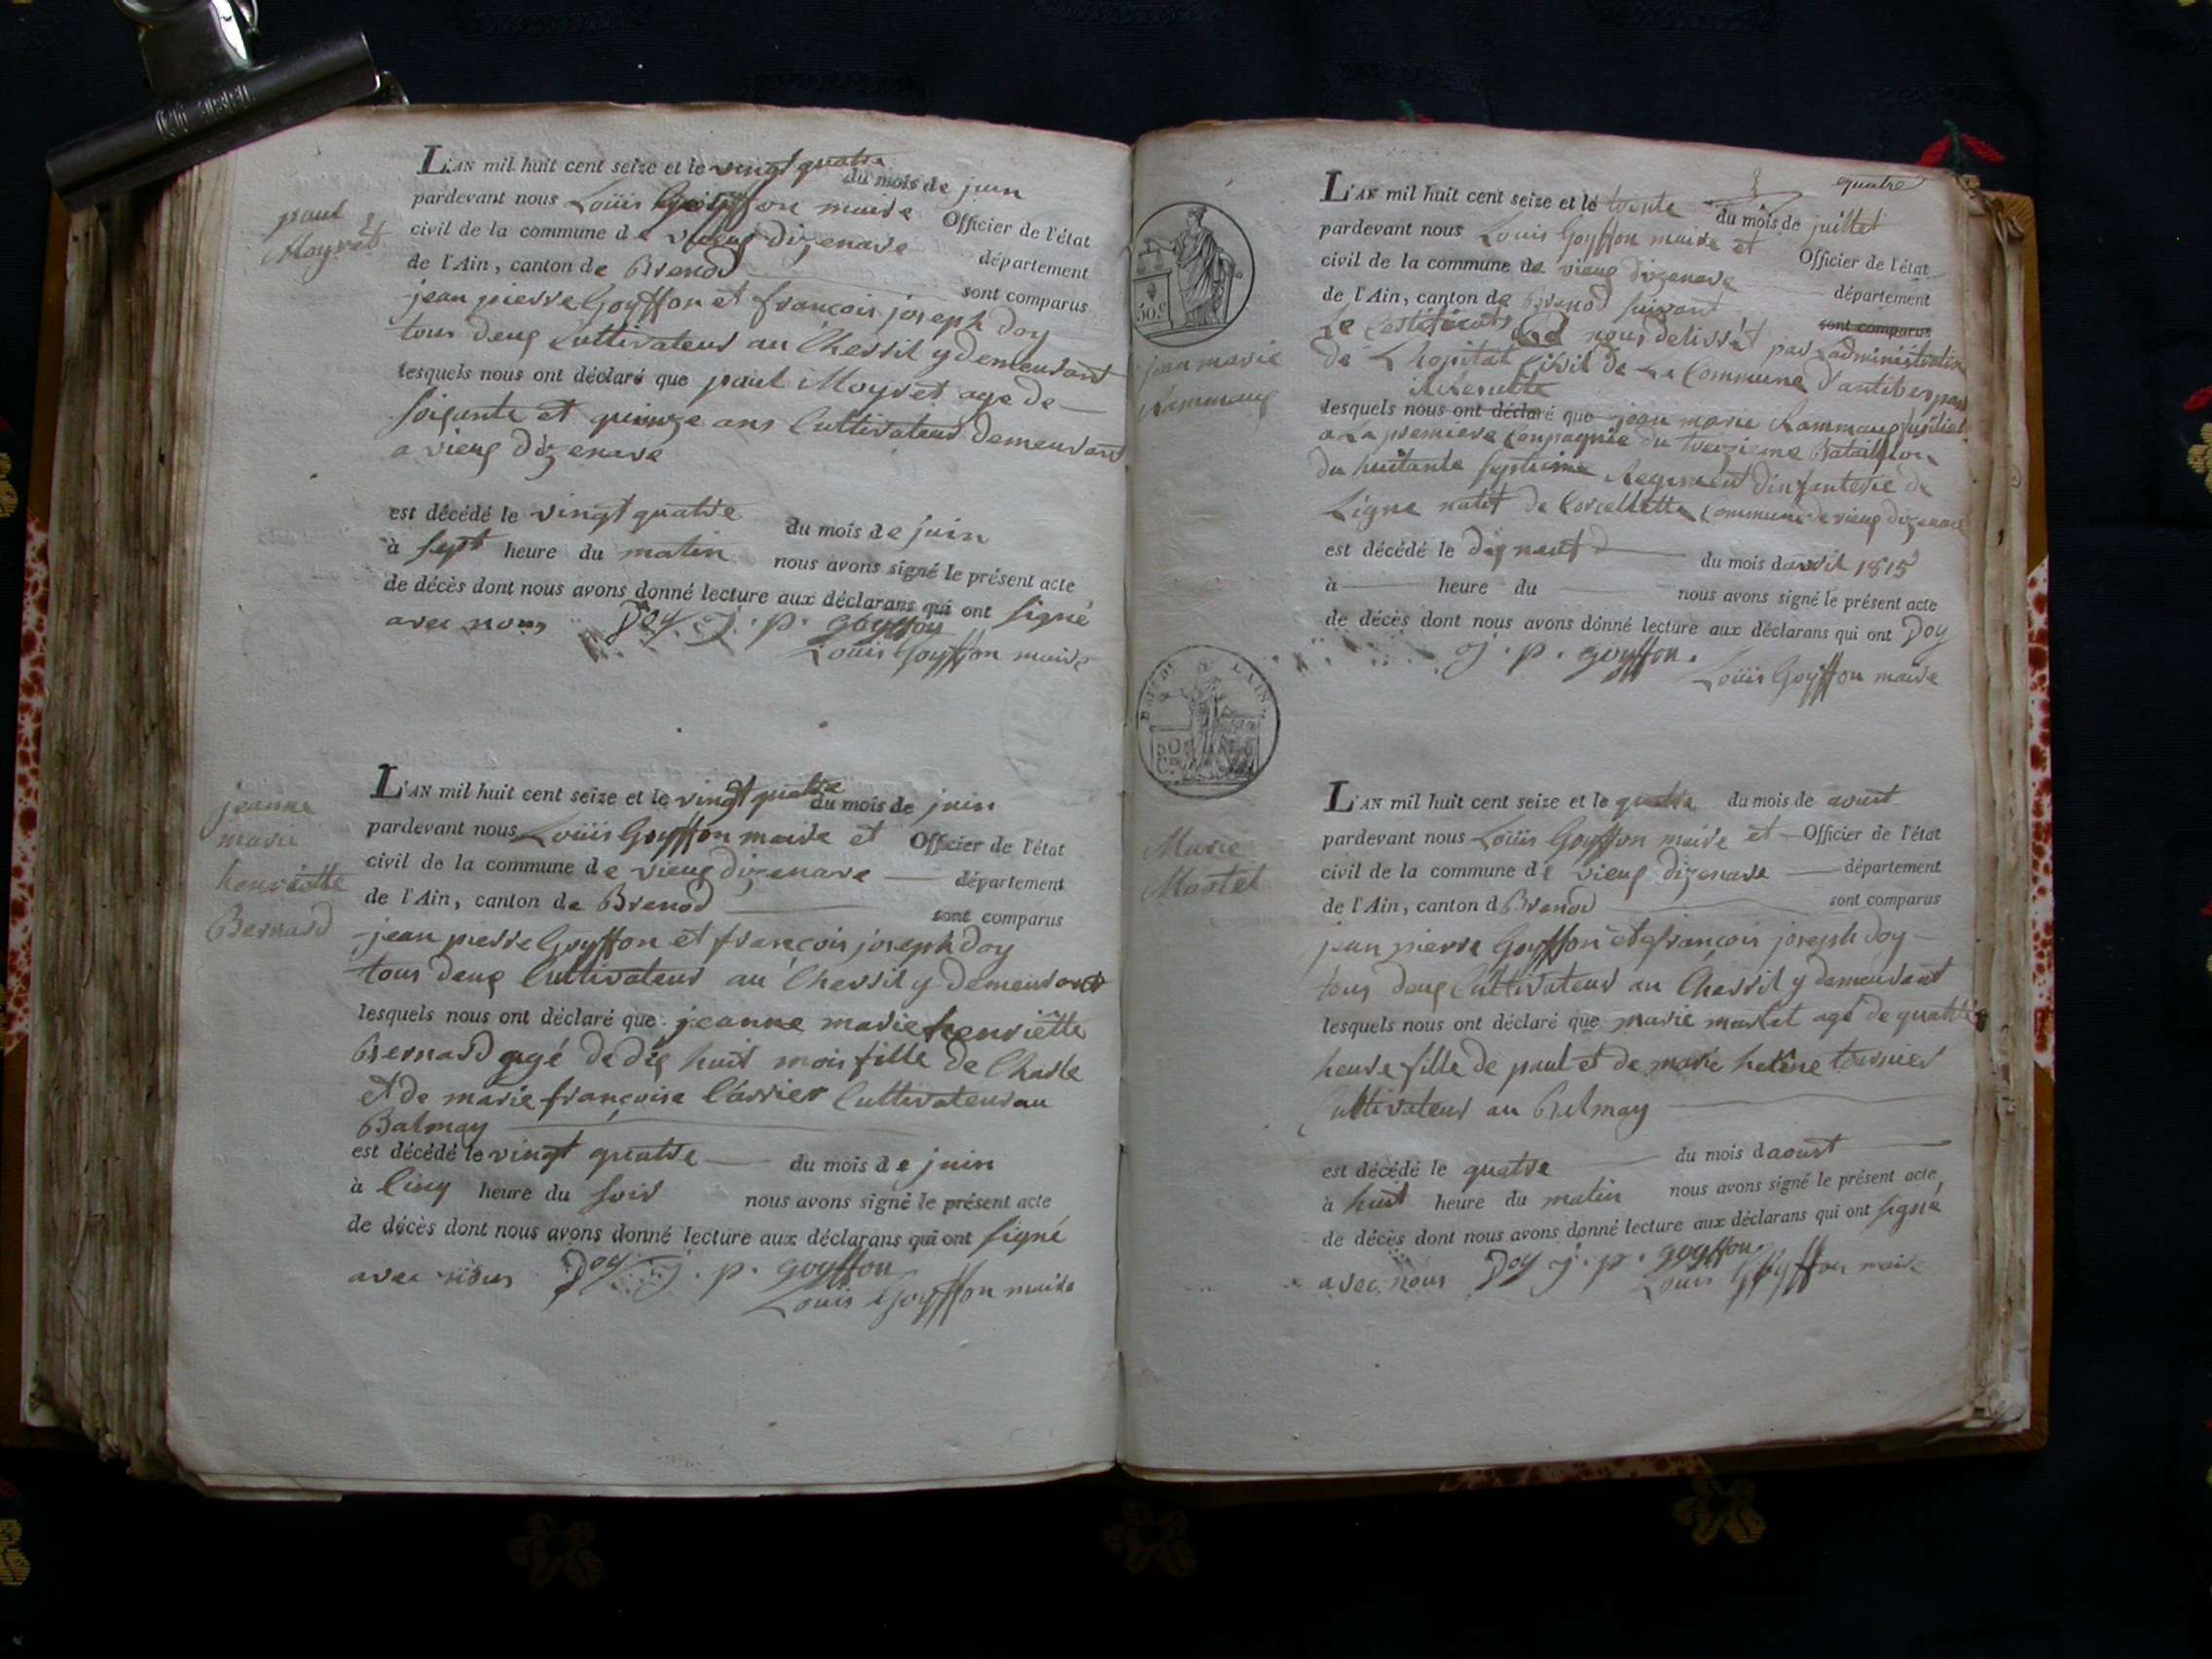 paul
Moyret
L'AN mil huit cent seize et le vingt quatre du mois de juin
pardevant nous Loüis Goyffon maire Officier de l'état
civil de la commune de vieux dizenave département
de l'Ain, canton de Brenod sont comparus
jean pierre Goyffon et françois joseph Doy
tous deux Cultivateur au Chevril y demeurant
lesquels nous ont déclaré que paul Moyret age de
soixante et quinze ans Cultivateur demeurant
a vieux dizenave
est décédé le vingt quatre du mois de juin
à sept heure du matin nous avons signé le présent acte
de décès dont nous avons donné lecture aux déclarans qui ont signé
avec nous Doy j. p. goyffon
Loüis Goyffon maire
jeanne
marie
henriette
Bernard
L'AN mil huit cent seize et le vingt quatre du mois de juin
pardevant nous Loüis Goyffon maire et Officier de l'état
civil de la commune de vieux dizenave département
de l'Ain, canton de Brenod sont comparus
jean pierre Goyffon et françois joseph Doy
tous deux Cultivateur au Chevril y demeurant
lesquels nous ont déclaré que jeanne marie henriëtte
Bernard agé de dix huit mois fille de Charle
et de marie françoise Carrier Cultivateur au
Balmay
est décédé le vingt quatre du mois de juin
à Cinq heure du soir nous avons signé le présent acte
de décès dont nous avons donné lecture aux déclarans qui ont signé
avec nous Doy j. p. goyffon
Louis Goyffon maire
quatre
50.c
jean marie
Rammaux
L'AN mil huit cent seize et le trente du mois de juillet
pardevant nous Louis Goyffon maire et Officier de l'état
civil de la commune de vieux dizenave département
de l'Ain, canton de Brenod suivant sont comparus
Le Certificat nous delivret par Ladministration
de Lhopital Civil de La Commune d'antibes par
lesquels nous ont déclaré que jean marie Rammaux fusilier
a La premiere Compagnie du treizieme Bataillon
du huitante septieme Regiment dinfanterie de
Ligne natif de Corcellette Commune de vieux dizenave
est décédé le dix neuf du mois davril 1815
à heure du nous avons signé le présent acte
de décès dont nous avons donné lecture aux déclarans qui ont Doy
j. p. goyffon.
Loüis Goyffon maire
L'AIN
Marie
Martel
L'AN mil huit cent seize et le quatre du mois de aoust
pardevant nous Loüis Goyffon maire et Officier de l'état
civil de la commune de vieux dizenave département
de l'Ain, canton d Brenod sont comparus
jean pierre Goyffon et françois joseph Doy
tous deux Cultivateur au Chevril y demeurant
lesquels nous ont déclaré que marie martel agé de quatre
heure fille de paul et de marie helene tournier
Cultivateur au Balmay
est décédé le quatre du mois daoust
à huit heure du matin nous avons signé le présent acte
de décès dont nous avons donné lecture aux déclarans qui ont signé
avec nous Doy j. p. goyffon
Louis Goyffon maire